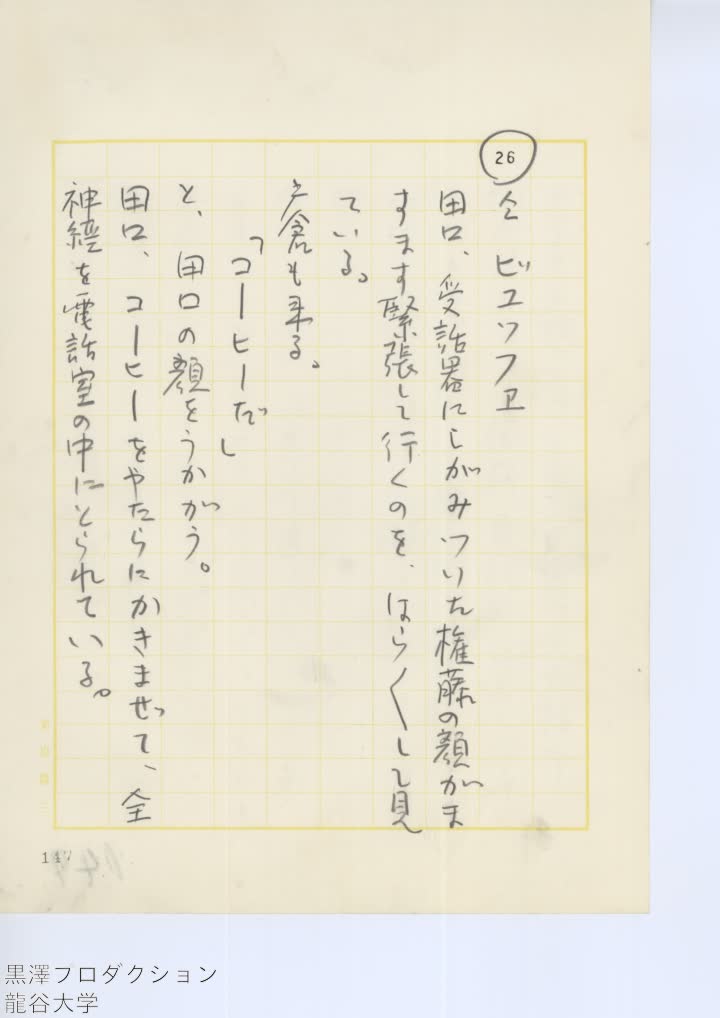 26
仝 ビユツフヱ
田口、受話器にしがみついた権藤の顔がま
すます緊張して行くのを、はら〱して見
ている。
戸倉も来る。
「コーヒーだ」
と、田口の顔をうかがう。
田口、コーヒーをやたらにかきまぜて、全
神経を電話室の中にとられている。
147
黒澤プロダクション
龍谷大学